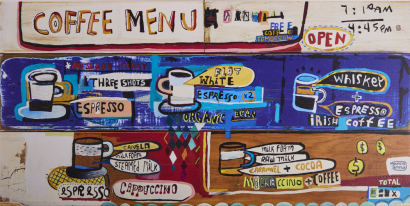 COFFEE MENU
FREE
TOMORROW
7:10AM
4:45PM
OPEN
THREE SHOTS
ESPRESSO
FLAT
WHITE
ESPRESSO x2
ORGANIC BEAN
WHISKEY
+
ESPRESSO
IRISH COFFEE
CANELA
MILK FOAM
STEAMED MILK
ESPRESSO
CAPPUCCINO
MILK FOAM
RAW MILK
CARAMEL + COCOA
MOKACCINO + COFFEE
$
$
$
TOTAL